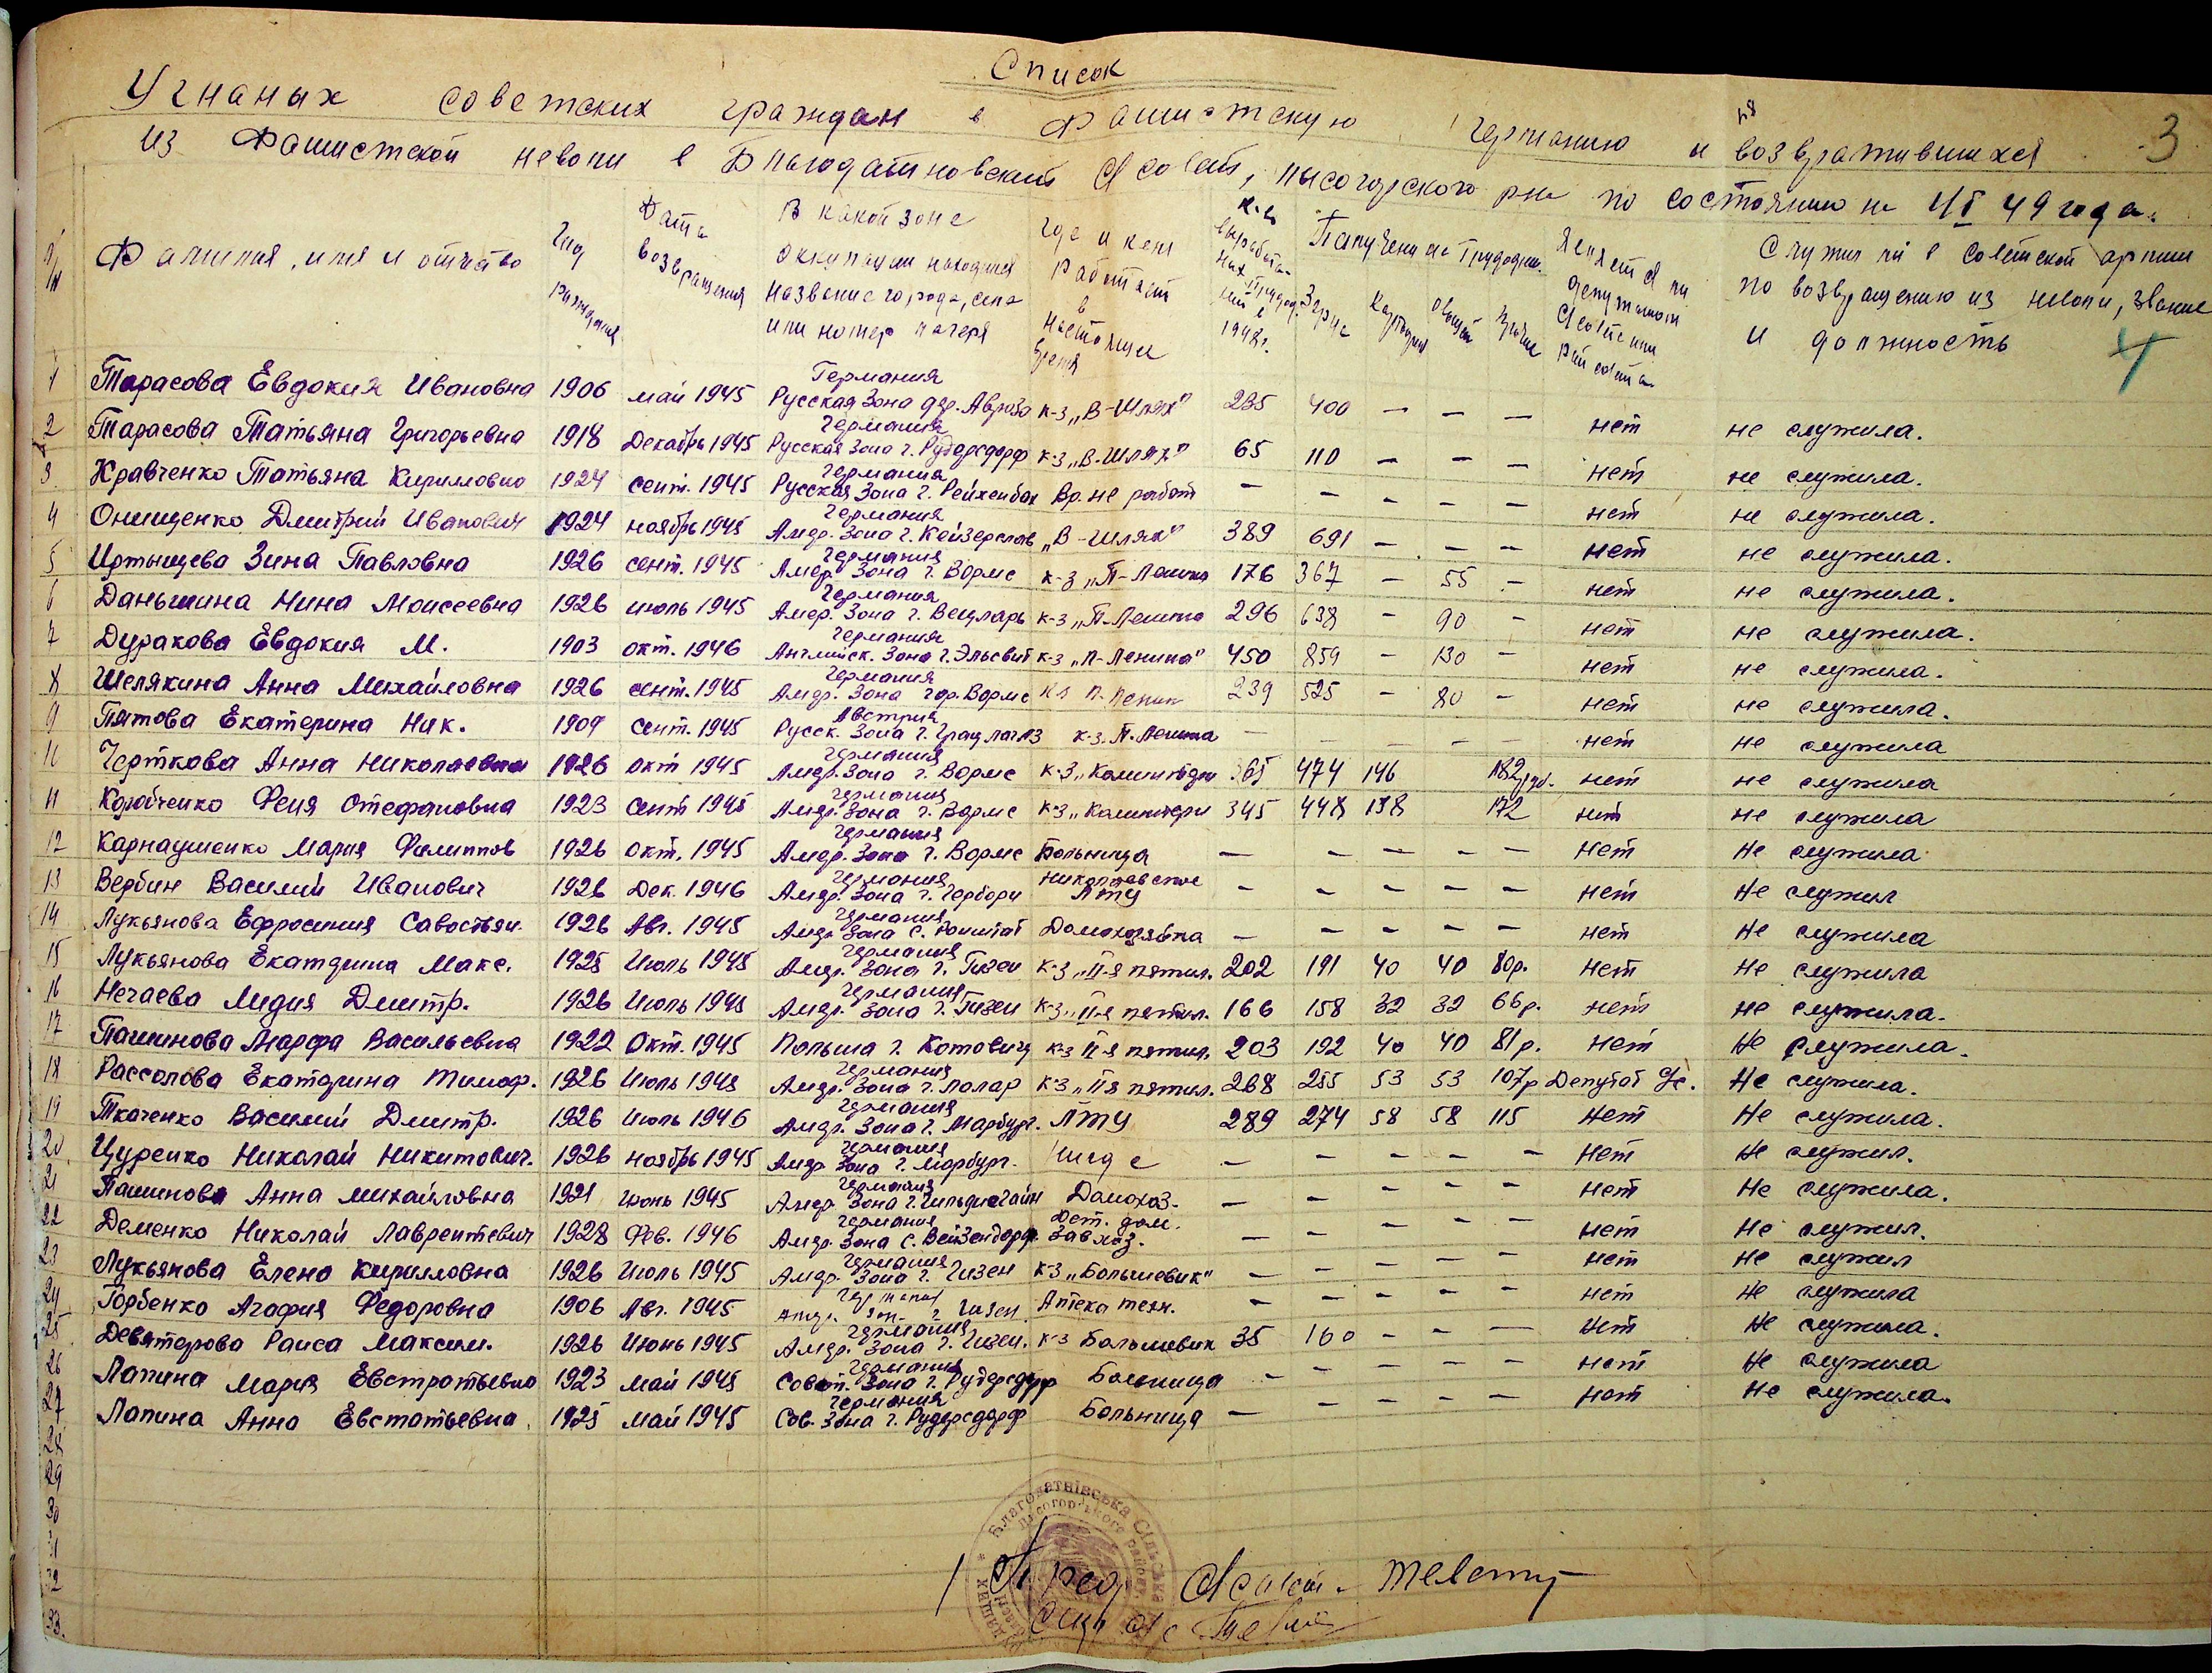 Список
3
Угнаных советских граждан в Фашистскую Германию и возвратившихся
из Фашистской неволи в Благодатновский с/совет, лысогорского р-на по состоянию на 1/I 49 года.
№ п/п Фамилия, имя и отчество Год рождения Дата возвращения В какой зоне оккупации находился название города, села или номер лагеря Где и кем работает в настоящее время К-во выработанных трудодней в 1948 г. Получено на трудодни. Зерна Картофеля Овощей Прочие Является ли депутатом с/совета или рай совета Служил ли в Советской армии по возвращению из неволи, звание и должность
4
1 Тарасова Евдокия Ивановна 1906 май 1945 Германия Русская Зона дер. к-з „В-Шлях" 235 400 — — — нет не служила.
2 Тарасова Татьяна Григорьевна 1918 Декабрь 1945 Германия Русская Зона г. Рудерсдорф к-з „В-Шлях" 65 110 — — — нет не служила.
3 Кравченко Татьяна Кирилловно 1924 сент. 1945 Германия Русская Зона г. Рейхенбах Вр. не работ — — — — — нет не служила.
4 Онищенко Дмитрий Иванович 1924 ноябрь 1945 Германия Амер. Зона г. Кейзерслав „В-Шлях" 389 691 — — — нет не служила.
5 Иртыщева Зина Павловна 1926 сент. 1945 Германия Амер. Зона г. Вормс к-з „П-Ленина 176 367 — 55 — нет не служила.
6 Даньшина Нина Моисеевна 1926 июль 1945 Германия Амер. Зона г. Вецларь к-з „П-Ленина 296 638 — 90 — нет не служила.
7 Дуракова Евдокия М. 1903 окт. 1946 Германия Английск. Зона г. Эльсвит к-з „П-Ленина" 450 859 — 130 — нет не служила.
8 Шелякина Анна Михайловна 1926 сент. 1945 Германия Амер. Зона гор. Вормс кз П. Ленин 239 525 — 80 — нет не служила.
9 Пятова Екатерина Ник. 1909 сент. 1945 Австрия Русск. Зона г. Грац лаг. 13 к-з. П. Ленина — — — — — нет не служила
10 Черткова Анна Николаевна 1926 окт 1945 Германия Амер. Зона г. Вормс к-з „Коминтерн 365 474 146 182 руб. нет не служила
11 Корюбченко Феня Стефановна 1923 сент 1945 Германия Амер. Зона г. Вормс к-з „Коминтерн 345 448 138 172 нет не служила
12 Карнаушенко Мария Филиппов 1926 окт. 1945 Германия Амер. Зона г. Вормс Больница — — — — — нет Не служила
13 Вербин Василий Иванович 1926 Дек. 1946 Германия Амер. Зона г. Герборн Николаевское ЛТУ — — — — — нет Не служил
14 Лукьянова Ефросиния Савостьян. 1926 Авг. 1945 Германия Амер Зона с. Домохозяйка — — — — — нет Не служила
15 Лукьянова Екатерина Макс. 1925 Июль 1945 Германия Амер. Зона г. Гизен к-з „II-я пятил. 202 191 40 40 80р. нет Не служила
16 Нечаева Лидия Дмитр. 1926 Июль 1945 Германия Амер. Зона г. Гизен к-з „II-я пятил. 166 158 32 32 66р. нет Не служила.
17 Пашинова Марфа Васильевна 1922 Окт. 1945 Польша г. Котовиц к-з II-я пятил. 203 192 40 40 81р. нет Не служила.
18 Рассолова Екатерина Тимоф. 1926 Июль 1945 Германия Амер. Зона г. Лолар к-з „II-я пятил. 268 255 53 53 107р Депутат с/с. Не служила.
19 Ткаченко Василий Дмитр. 1926 Июль 1946 Германия Амер. Зона г. Марбург. ЛТУ 289 274 58 58 115 нет Не служила.
20 Цуренко Николай Никитович. 1926 ноябрь 1945 Германия Амер Зона г. Марбург. Нигде — — — — — нет Не служил.
21 Пашинова Анна Михайловна 1921 июнь 1945 Германия Амер. Зона г. Домохоз. — — — — — нет Не служила.
22 Деменко Николай Лаврентевич 1928 Фев. 1946 Германия Амер. Зона с. Вейзендорф Дет. дом. Завхоз. — — — — — нет Не служил.
23 Лукьянова Елена Кирилловна 1926 Июль 1945 Германия Амер. Зона г. Гизен к-з „Большевик" — — — — — нет Не служил
24 Горбенко Агафия Федоровна 1906 Авг. 1945 Германия Амер. Зон. г. Гизен. Аптека техн. — — — — — нет Не служила
25 Девятерова Раиса Максим. 1926 Июнь 1945 Германия Амер. Зона г. Гизен. к-з Большевик 35 160 — — — нет Не служила.
26 Лапина Мария Евстратьевна 1923 май 1945 Германия Совет. Зона г. Рудерсдорф Больница — — — — — нет Не служила
27 Лапина Анна Евстатьевна 1925 май 1945 Германия Сов. Зона г. Рудерсдорф Больница — — — — — нет Не служила.
28
29
30
31
32
33.
Благодатнівська Сільська
Лисогорського району
Пред с/совета
Секр с/с